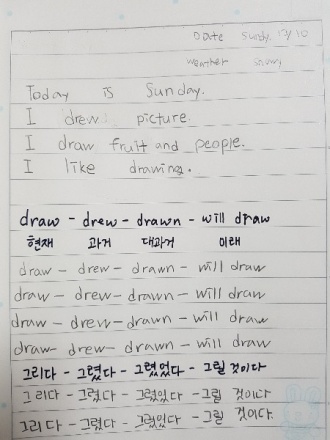 Date Sunday. 12/10
weather snowy
Today is Sunday.
I drew picture.
I draw fruit and people.
I like drawing.
draw - drew - drawn - will draw
현재 과거 대과거 미래
draw - drew - drawn - will draw
draw - drew - drawn - will draw
draw - drew - drawn - will draw
draw - drew - drawn - will draw
그리다 - 그렸다 - 그렸었다 - 그릴 것이다
그리다 - 그렸다 - 그렸었다 - 그릴 것이다
그리다 - 그렸다 - 그렸었다 - 그릴 것이다